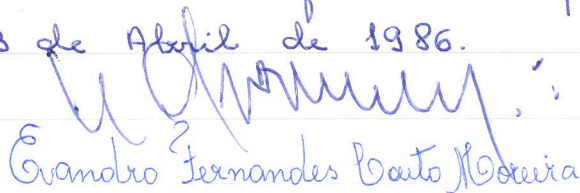 de Abril de 1986.
Evandro Fernandes Couto Moreira